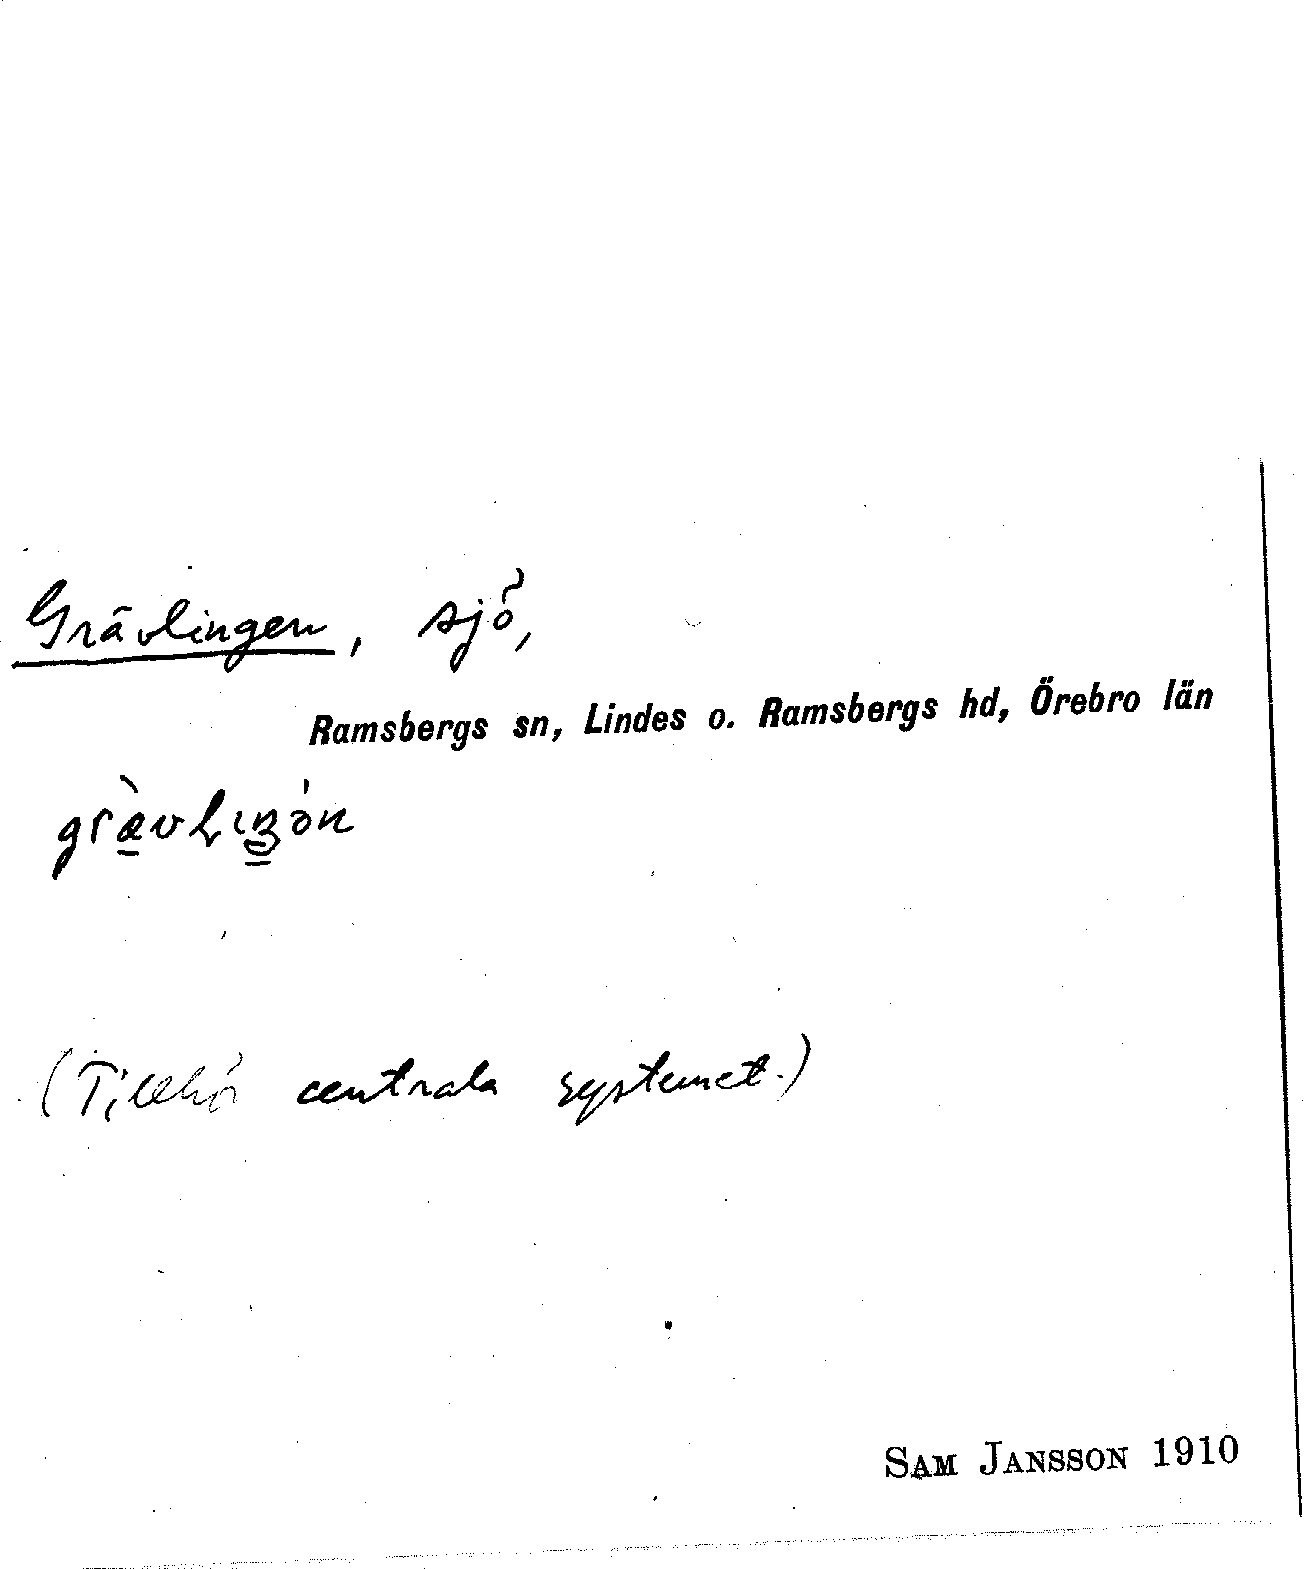 Grävlingen, sjö,
Ramsbergs sn, Lindes o. Ramsbergs hd, Örebro län
(Tillhör centrala systemet.)
SAM JANSSON 1910